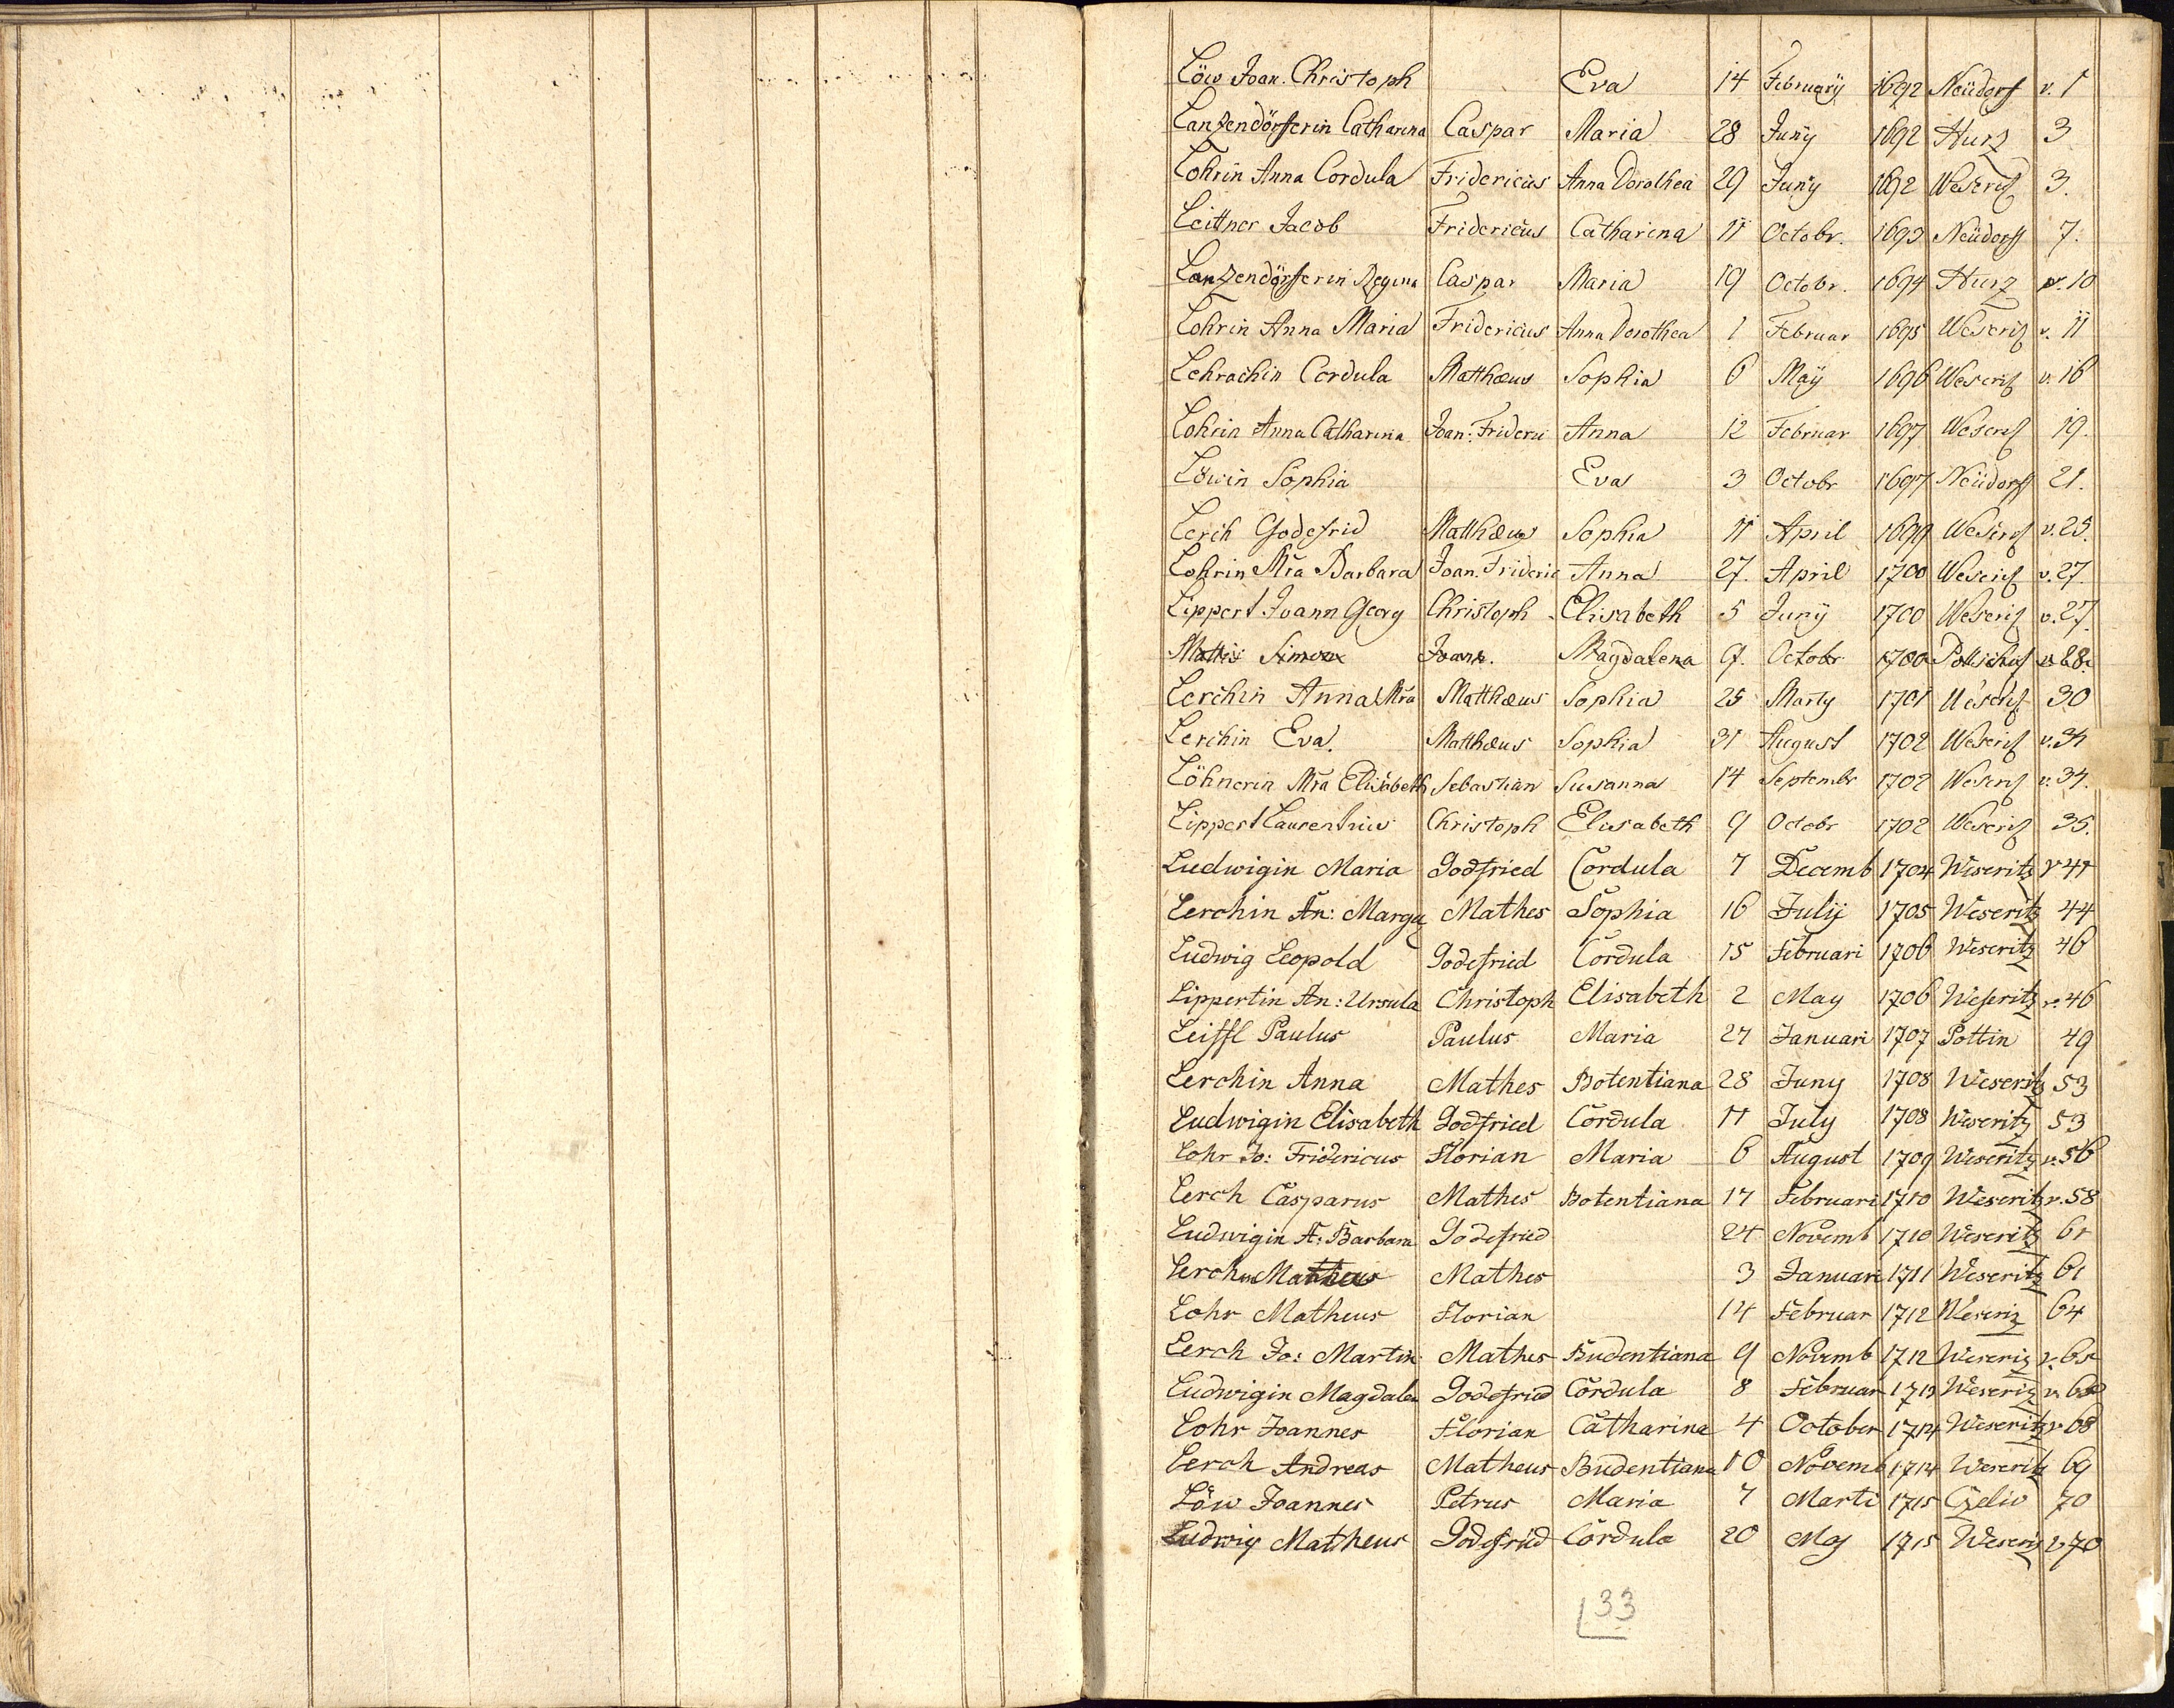 Löw Joan. Christoph Eva 14 Februarÿ 1692 Neüdorf v. 1
Lanzendörferin Catharina Caspar Maria 28 Junÿ 1692 Hurz 3
Lohrin Anna Cordula Fridericus Anna Dorothea 29 Junÿ 1692 Weseriz 3.
Leittner Jacob Fridericus Catharina 11 Octobr. 1693 Neüdorff 7.
Lanzendörferin Regina Caspar Maria 19 Octobr. 1694 Hurz v. 10
Lohrin Anna Maria Fridericus Anna Dorothea 1 Februar 1695 Weseriz v. 11
Lehrachin Cordula Matthæus Sophia 6 Maÿ 1696 Weseriz v. 16
Lohrin Anna Catharina Joan: Frideri Anna 12 Februar 1697 Weseriz 19.
Löwin Sophia Eva 3 Octobr 1697 Neüdorff 21.
Lerch Godefrid Matthæus Sophia 11 April 1699 Weseriz v. 25.
Lohrin Mra Barbara Joan. Frideric Anna 27. April 1700 Weseriz v. 27.
Lippert Joann Georg Christoph Elisabeth 5 Junÿ 1700 Weseriz v. 27.
Mattis Simon Joann. Magdalena 9. Octobr 1700 v 28.
Lerchin Anna Mra Matthæus Sophia 25 Marty 1701 Weseriz 30
Lerchin Eva. Matthæus Sophia 31 August 1702 Weseriz v. 34
Löhnerin Mra Elisabeth Sebastian Susanna 14 Septembr 1702 Weseriz v. 34.
Lippert Laurentius Christoph Elisabeth 9 Octobr 1702 Weseriz 35.
Ludwigin Maria Godfried Cordula 7 Decemb 1704 Weseritz v 41
Lerchin An: Marga Mathes Sophia 16 Julij 1705 Weseritz 44
Ludwig Leopold Godefried Cordula 15 Februari 1706 Weseritz 46
Lippertin An: Ursula Christoph Elisabeth 2 May 1706 Weseritz v. 46
Leiffl Paulus Paulus Maria 27 Januari 1707 Pottin 49
Lerchin Anna Mathes Botentiana 28 Juny 1708 Weseritz 53
Ludwigin Elisabeth Godfried Cordula 11 July 1708 Weseritz 53
Lohr Jo: Fridericus Florian Maria 6 August 1709 Weseritz v. 56
Lerch Casparus Mathes Botentiana 17 Februari 1710 Weseritz v. 58
Ludwigin A: Barbara Godefried 24 Novemb 1710 Weseritz 61
Lerch Matheus Mathes 3 Januari 1711 Weseritz 61
Lohr Matheus Florian 14 Februar 1712 Weseriz 64
Lerch Jo: Martin Mathes Budentiana 9 Novemb 1712 Weseriz v. 65
Ludwigin Magdalen Godefried Cordula 8 Februar 1713 Weseriz v.
Lohr Joannes Florian Catharina 4 October 1714 Weseritz v 68
Lerch Andreas Matheus Budentiana 10 Novemb 1714 Weseritz 69
Löw Joannes Petrus Maria 7 Marti 1715 Czeliv 70
Ludwig Matheus Godefrid Cordula 20 Maj 1715 Weseriz v 70
33